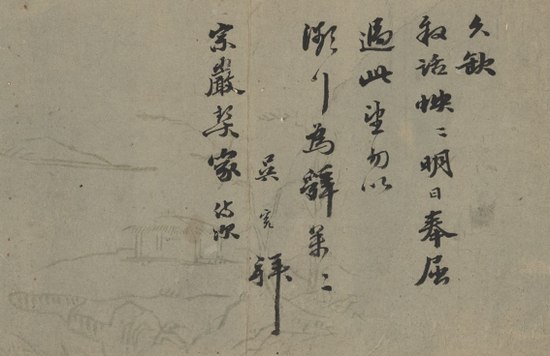 久缺
敘話怏〻明日奉屈
過此望勿以
瀕行為辭萬〻
吳寬拜
宗嚴契家侍次